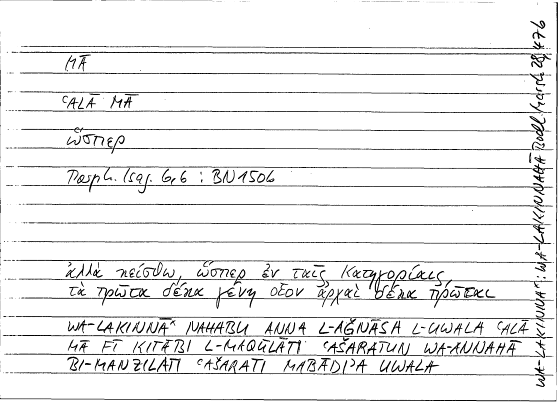 MĀ
ʿALĀ MĀ
ὥσπερ
Porph. Isag. 6,6 : BN 1506
ἀλλὰ κείσθω, ὥσπερ ἐν ταῖς Κατηγορίαις,
τὰ πρῶτα δέκα γένη οἷον ἀρχαὶ δέκα πρῶται
WA-LAKINNĀ^ NAHABU ANNA L-AǦNĀSA L-UWALA ʿALĀ
MĀ FĪ KITĀBI L-MAQŪLĀTI ʿAŠARATUN WA-ANNAHĀ
BI-MANZILATI ʿAŠARATI MABĀDIʾA UWALA
WA-LAKINNĀ^ : WA-LAKINNAHĀ Bodl. Marsh 28, 476